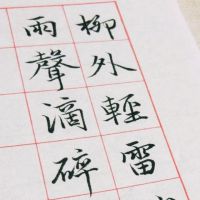 柳外輕雷
雨聲滴碎